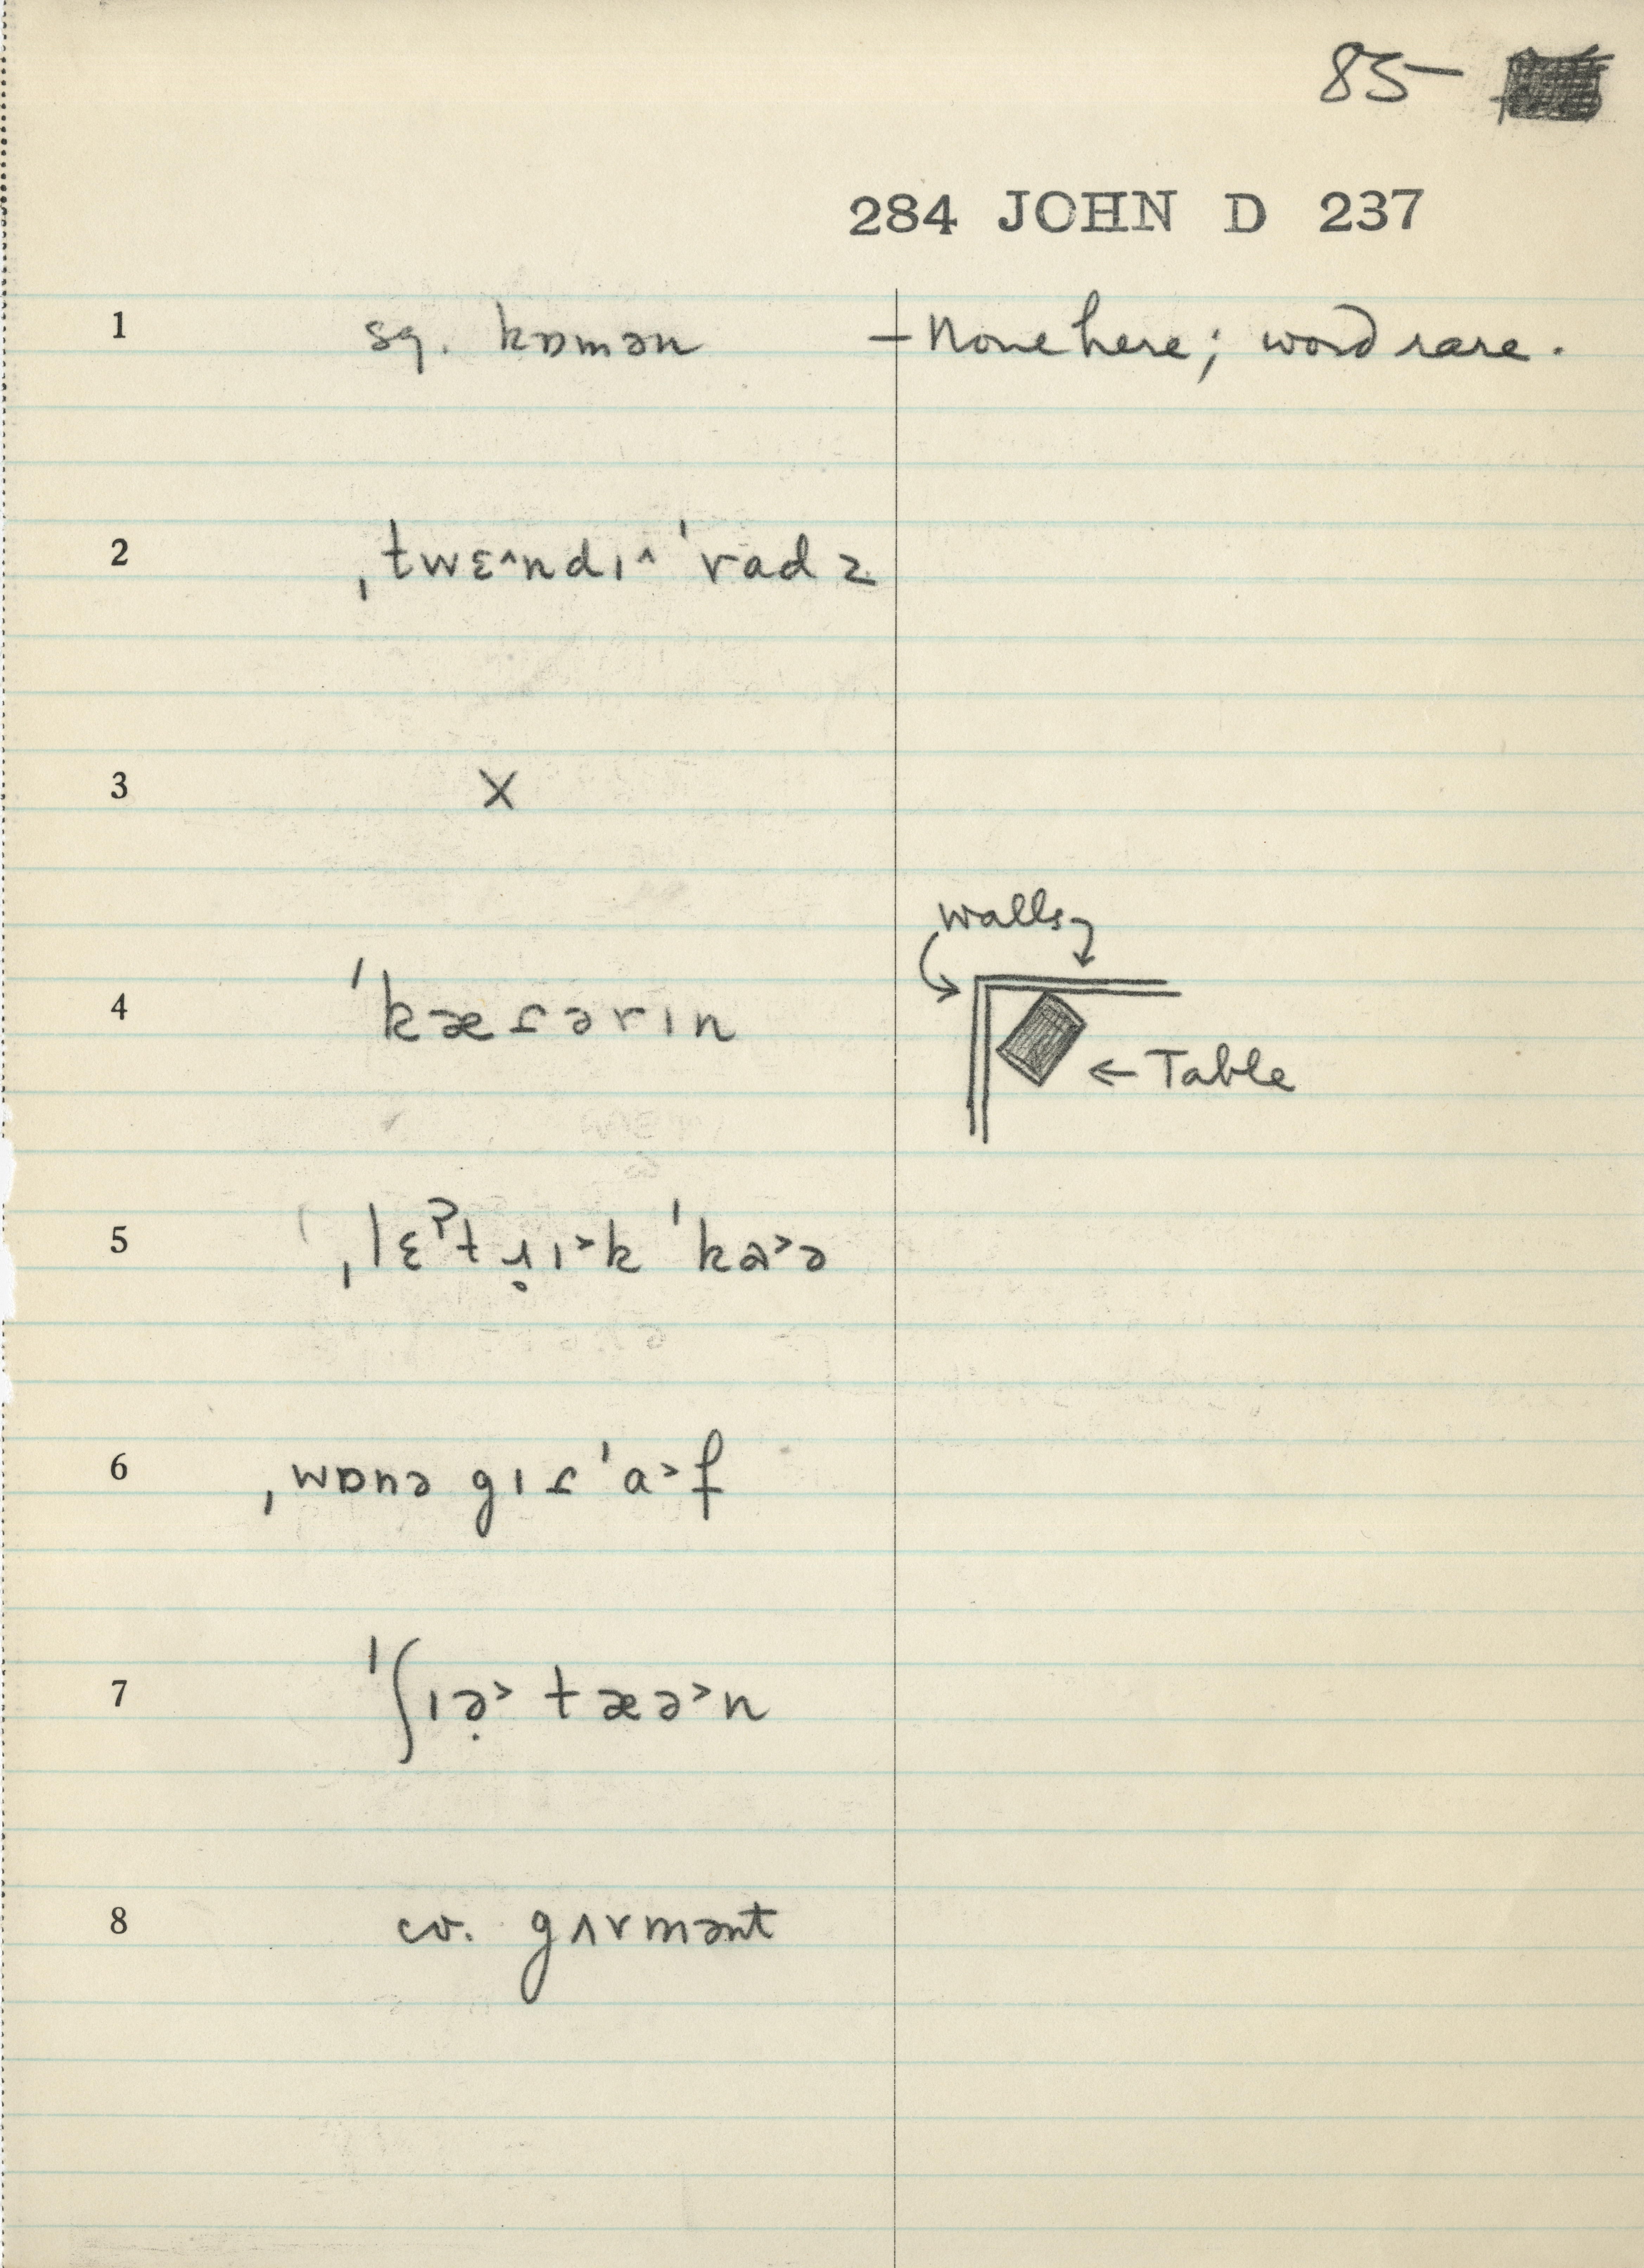 85-
284 JOHN D 237
1 sq. kɒmən – None here; word rare.
2 ˌtwɛ^ndɪ^ ˈradz
3 X
walls
4 ˈkæɾərɪn
← Table
5 ˌlɛˀt ɹ̥ɪ>k ˈkɑ>ə
6 ˌwɒnə gɪɾ ˈa>f
7 ˈʃɪə̣> tæə>n
8 cv. gʌrmənt